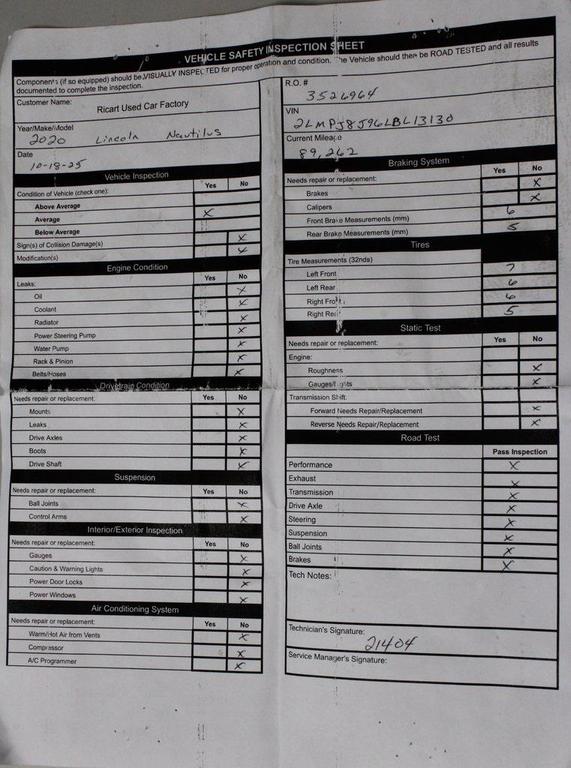 VEHICLE SAFETY INSPECTION SHEET
Components (if so equipped) should be VISUALLY INSPECTED for proper operation and condition. The Vehicle should then be ROAD TESTED and all results
documented to complete the inspection.
Customer Name: Ricart Used Car Factory
Year/Make/Model
2020 Lincoln Nautilus
Date
10-18-25
Vehicle Inspection
Condition of Vehicle (check one): Yes No
Above Average
Average X
Below Average
Sign(s) of Collision Damage(s) X
Modification(s) X
Engine Condition
Leaks: Yes No
Oil X
Coolant X
Radiator X
Power Steering Pump X
Water Pump X
Rack & Pinion X
Belts/Hoses X
Drivetrain Condition
Needs repair or replacement: Yes No
Mounts X
Leaks X
Drive Axles X
Boots X
Drive Shaft X
Suspension
Needs repair or replacement: Yes No
Ball Joints X
Control Arms X
Interior/Exterior Inspection
Needs repair or replacement: Yes No
Gauges X
Caution & Warning Lights X
Power Door Locks X
Power Windows X
Air Conditioning System
Needs repair or replacement: Yes No
Warm/Hot Air from Vents X
Compressor X
A/C Programmer X
R.O. #
3526964
VIN
2LMPJ8J96LBL13130
Current Mileage
89,262
Braking System
Needs repair or replacement: Yes No
Brakes X
Calipers X
Front Brake Measurements (mm) 6
Rear Brake Measurements (mm) 5
Tires
Tire Measurements (32nds)
Left Front 7
Left Rear 6
Right Front 6
Right Rear 5
Static Test
Needs repair or replacement: Yes No
Engine:
Roughness X
Gauges/Lights X
Transmission Shift:
Forward Needs Repair/Replacement X
Reverse Needs Repair/Replacement X
Road Test
Pass Inspection
Performance X
Exhaust X
Transmission X
Drive Axle X
Steering X
Suspension X
Ball Joints X
Brakes X
Tech Notes:
Technician's Signature:
21404
Service Manager's Signature: